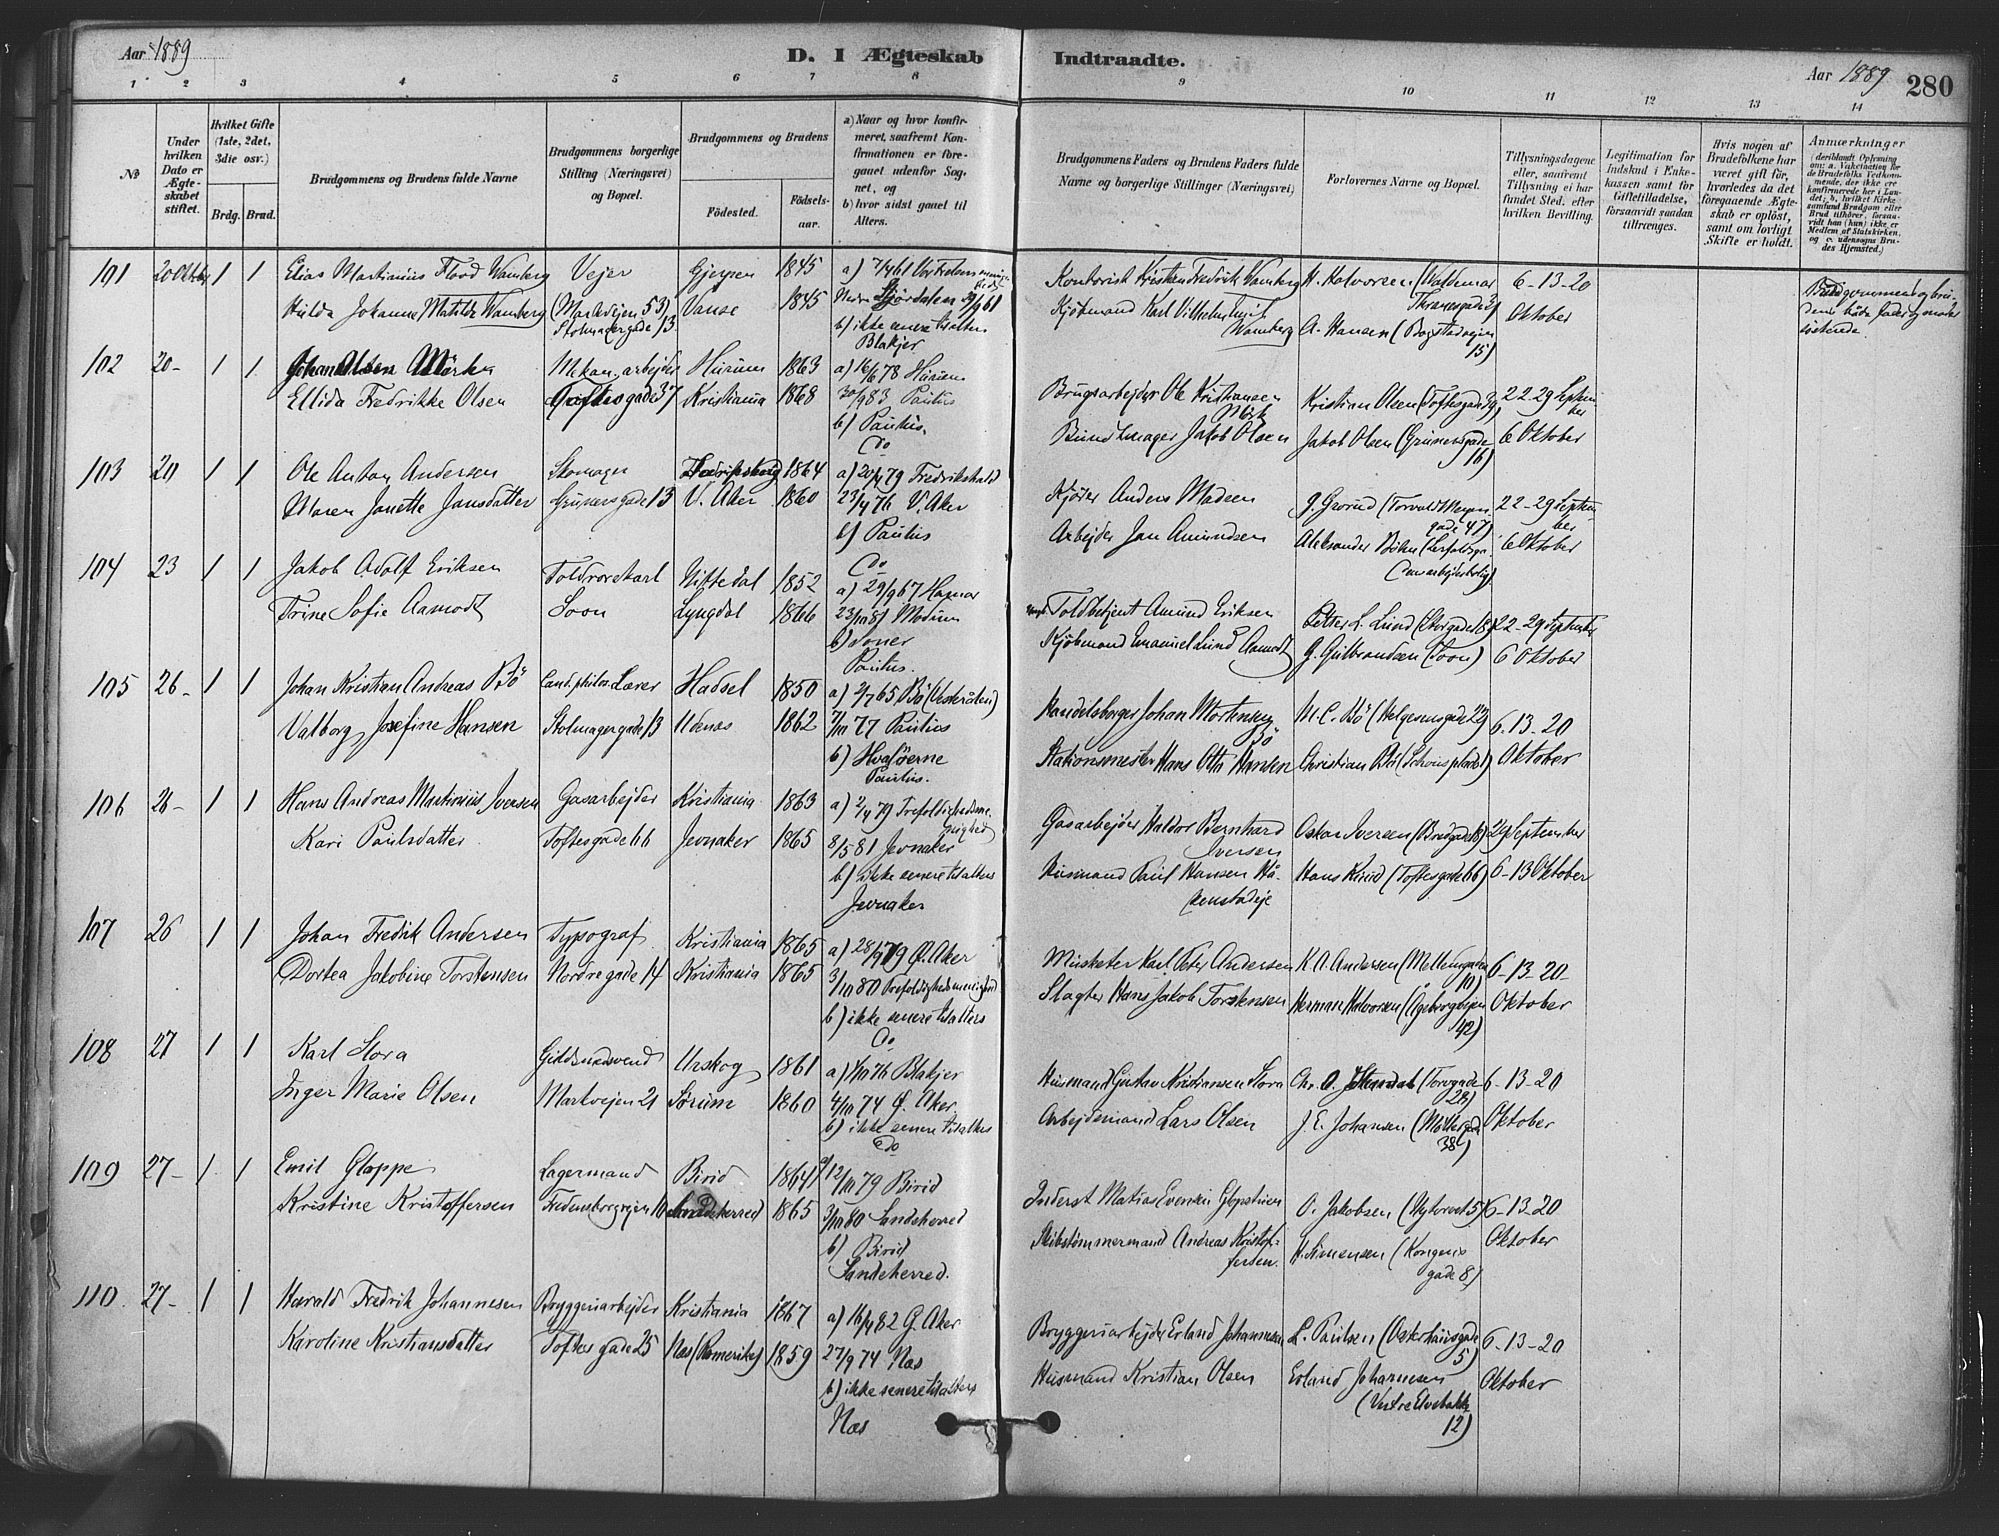 Aar 1889
D. 1 Ægteskab Indtraadte.
Aar 1889
280
1 2 3 4 5 6 7 8 9 10 11 12 13 14
No
Under hvilken Dato er Ægteskabet stiftet.
Hvilket Gifte (1ste, 2det, 3die osv.)
Brdg. Brud.
Brudgommens og Brudens fulde Navne
Brudgommens borgerlige Stilling (Næringsvei) og Bopæl.
Brudgommens og Brudens
Fødested.
Fødselsaar.
a) Naar og hvor konfirmeret, saafremt Konfirmationen er foregaaet udenfor Sognet, og
b) hvor sidst gaaet til Alters.
Brudgommens Faders og Brudens Faders fulde Navne og borgerlige Stillinger (Næringsvei)
Forlovernes Navne og Bopæl.
Tillysningsdagene eller, saafremt Tillysning ei har fundet Sted, efter hvilken Bevilling.
Legitimation for Indskud i Enkekassen samt for Giftetilladelse, forsaavidt saadan tiltrænges.
Hvis nogen af Brudefolkene har været gift før, hvorledes da det foregaaende Ægteskab er opløst, samt om lovligt Skifte er holdt.
Anmærkninger
101 20 Oktbr 1 1 Elias Martinius Flood Wamberg Vejer Gjerpen 1845
Hulda Johanne Matilde Wamberg (Markvejen 53) Stolmagergade 13 Vanse 1845
b) ikke senere til alters
Blakjer
Kontorist Kristian Fredrik Wamberg H. Halvorsen (Waldemar Thranesgade 3) 6-13-20
Kjøbmand Karl Vilhelm Wamberg A. Hansen (Bogstadvejen 15) Oktober
102 20- 1 1 Johan Olsen Mörk Mekan. arbejder Hurum 1863 a) 16/6 78 Hurum
Ellida Fredrikke Olsen Toftesgade 37 Kristiania 1868 30/9 83 Paulus
b) Paulus.
Do
Brugsarbejder Ole Kristiansen Mörk Kristian Olsen (Toftesgade 39) 22-29 September
Jakob Olsen Jakob Olsen (Grünersgade 16) 6 Oktober
103 20 1 1 Ole Anton Andersen Skomager 1864 a) 20/4 79 Fredrikshald
Maren Janette Jansdatter Grünersgade 13 V. Aker 1860 23/4 76 V. Aker
b) Paulus
Do
Kjører Anders Madsen G. Grorud (Torvald Meyersgade 47) 22-29 September
Arbejder Jan Amundsen Aleksander 6 Oktober
104 23 1 1 Jakob Adolf Eriksen Toldrorskarl Nittedal 1852 a) 29/9 67
Trine Sofie Aamodt Soon Lyngdal 1866 23/10 81 Modum
b) Soner
Paulus.
Toldbetjent Amund Eriksen Petter L. Lund (Storgade 18) 22-29 September
Kjøbmand Emanuel Lund Aamodt G. Gulbrandsen (Soon) 6 Oktober
105 26- 1 1 Johan Kristian Andreas Bö Cand. philos. Lærer Hadsel 1850 a) 2/7 65 Bö (Vesterålen)
Valborg Josefine Hansen Stolmagergade 13 Udenes 1862 7/10 77 Paulus
b) Hvaløerne
Paulus.
Handelsborger Johan Mortensen Bö M. C. Bö (Helgesensgade 22) 6-13-20
Stationsmester Hans Otto Hansen Christian Bö (Schousplads 1) Oktober
106 26- 1 1 Hans Andreas Martinius Iversen Gasarbejder Kristiania 1863 a) 2/4 79 Trefoldighedsmenighed
Kari Paulsdatter Toftesgade 66 Jevnaker 1865 8/5 81 Jevnaker
b) ikke senere til alters
Jevnaker
Gasarbejder Haldor Bernhard Iversen Oskar Iversen (Bredgade 18) 29 September
Husmand Paul Hansen Håkenstadeje Hans Ruud (Toftesgade 66) 6-13 Oktober
107 26 1 1 Johan Fredrik Andersen Typograf Kristiania 1865 a) 28/9 79 Ø. Aker
Dortea Jakobine Torstensen Nordregade 14 Kristiania 1865 3/10 80 Trefoldighedsmenighed
b) ikke senere til alters
Do
Musketer Karl Peter Andersen K. A. Andersen (Mellemgaden 10) 6-13-20
Slagter Hans Jakob Torstensen Herman Halvorsen (Ageborgvejen 42) Oktober
108 27 1 1 Karl Slora Gjødsmedsvend Urskog 1861 a) 1/10 76 Blakjer
Inger Marie Olsen Markvejen 21 Sørum 1860 4/10 74 Ø. Aker
b) ikke senere til alters
Do
Husmand Gustav Kristiansen Slora Chr. O. (Torvgade 28) 6-13-20
Arbejdsmand Lars Olsen J. E. Johansen (Møllergade 38) Oktober
109 27- 1 1 Emil Gloppe Lagermand Birid 1864 a) 12/10 79 Birid
Kristine Kristoffersen Fredensborgvejen 10 Sandeherred 1865 3/10 80 Sandeherred
b) Birid
Sandeherred.
Inderst Matias Evensen O. Jakobsen (Nytorvet 5) 6-13-20
Skibstømmermand Andreas Kristoffersen. H. Simensen (Kongensgade 8) Oktober
110. 27- 1 1 Harald Fredrik Johannesen Bryggeriarbejder Kristiania 1867 a) 16/4 82 G. Aker
Karoline Kristiansdatter Toftesgade 25 Næs (Romerike) 1859 27/9 74 Næs
b) ikke senere til alters
Næs
Bryggeriarbejder Erland Johannesen L. Paulsen (Osterhausgade 5) 6-13-20
Husmand Kristian Olsen Erland Johannesen (Vestre Elvebakke 12) Oktober